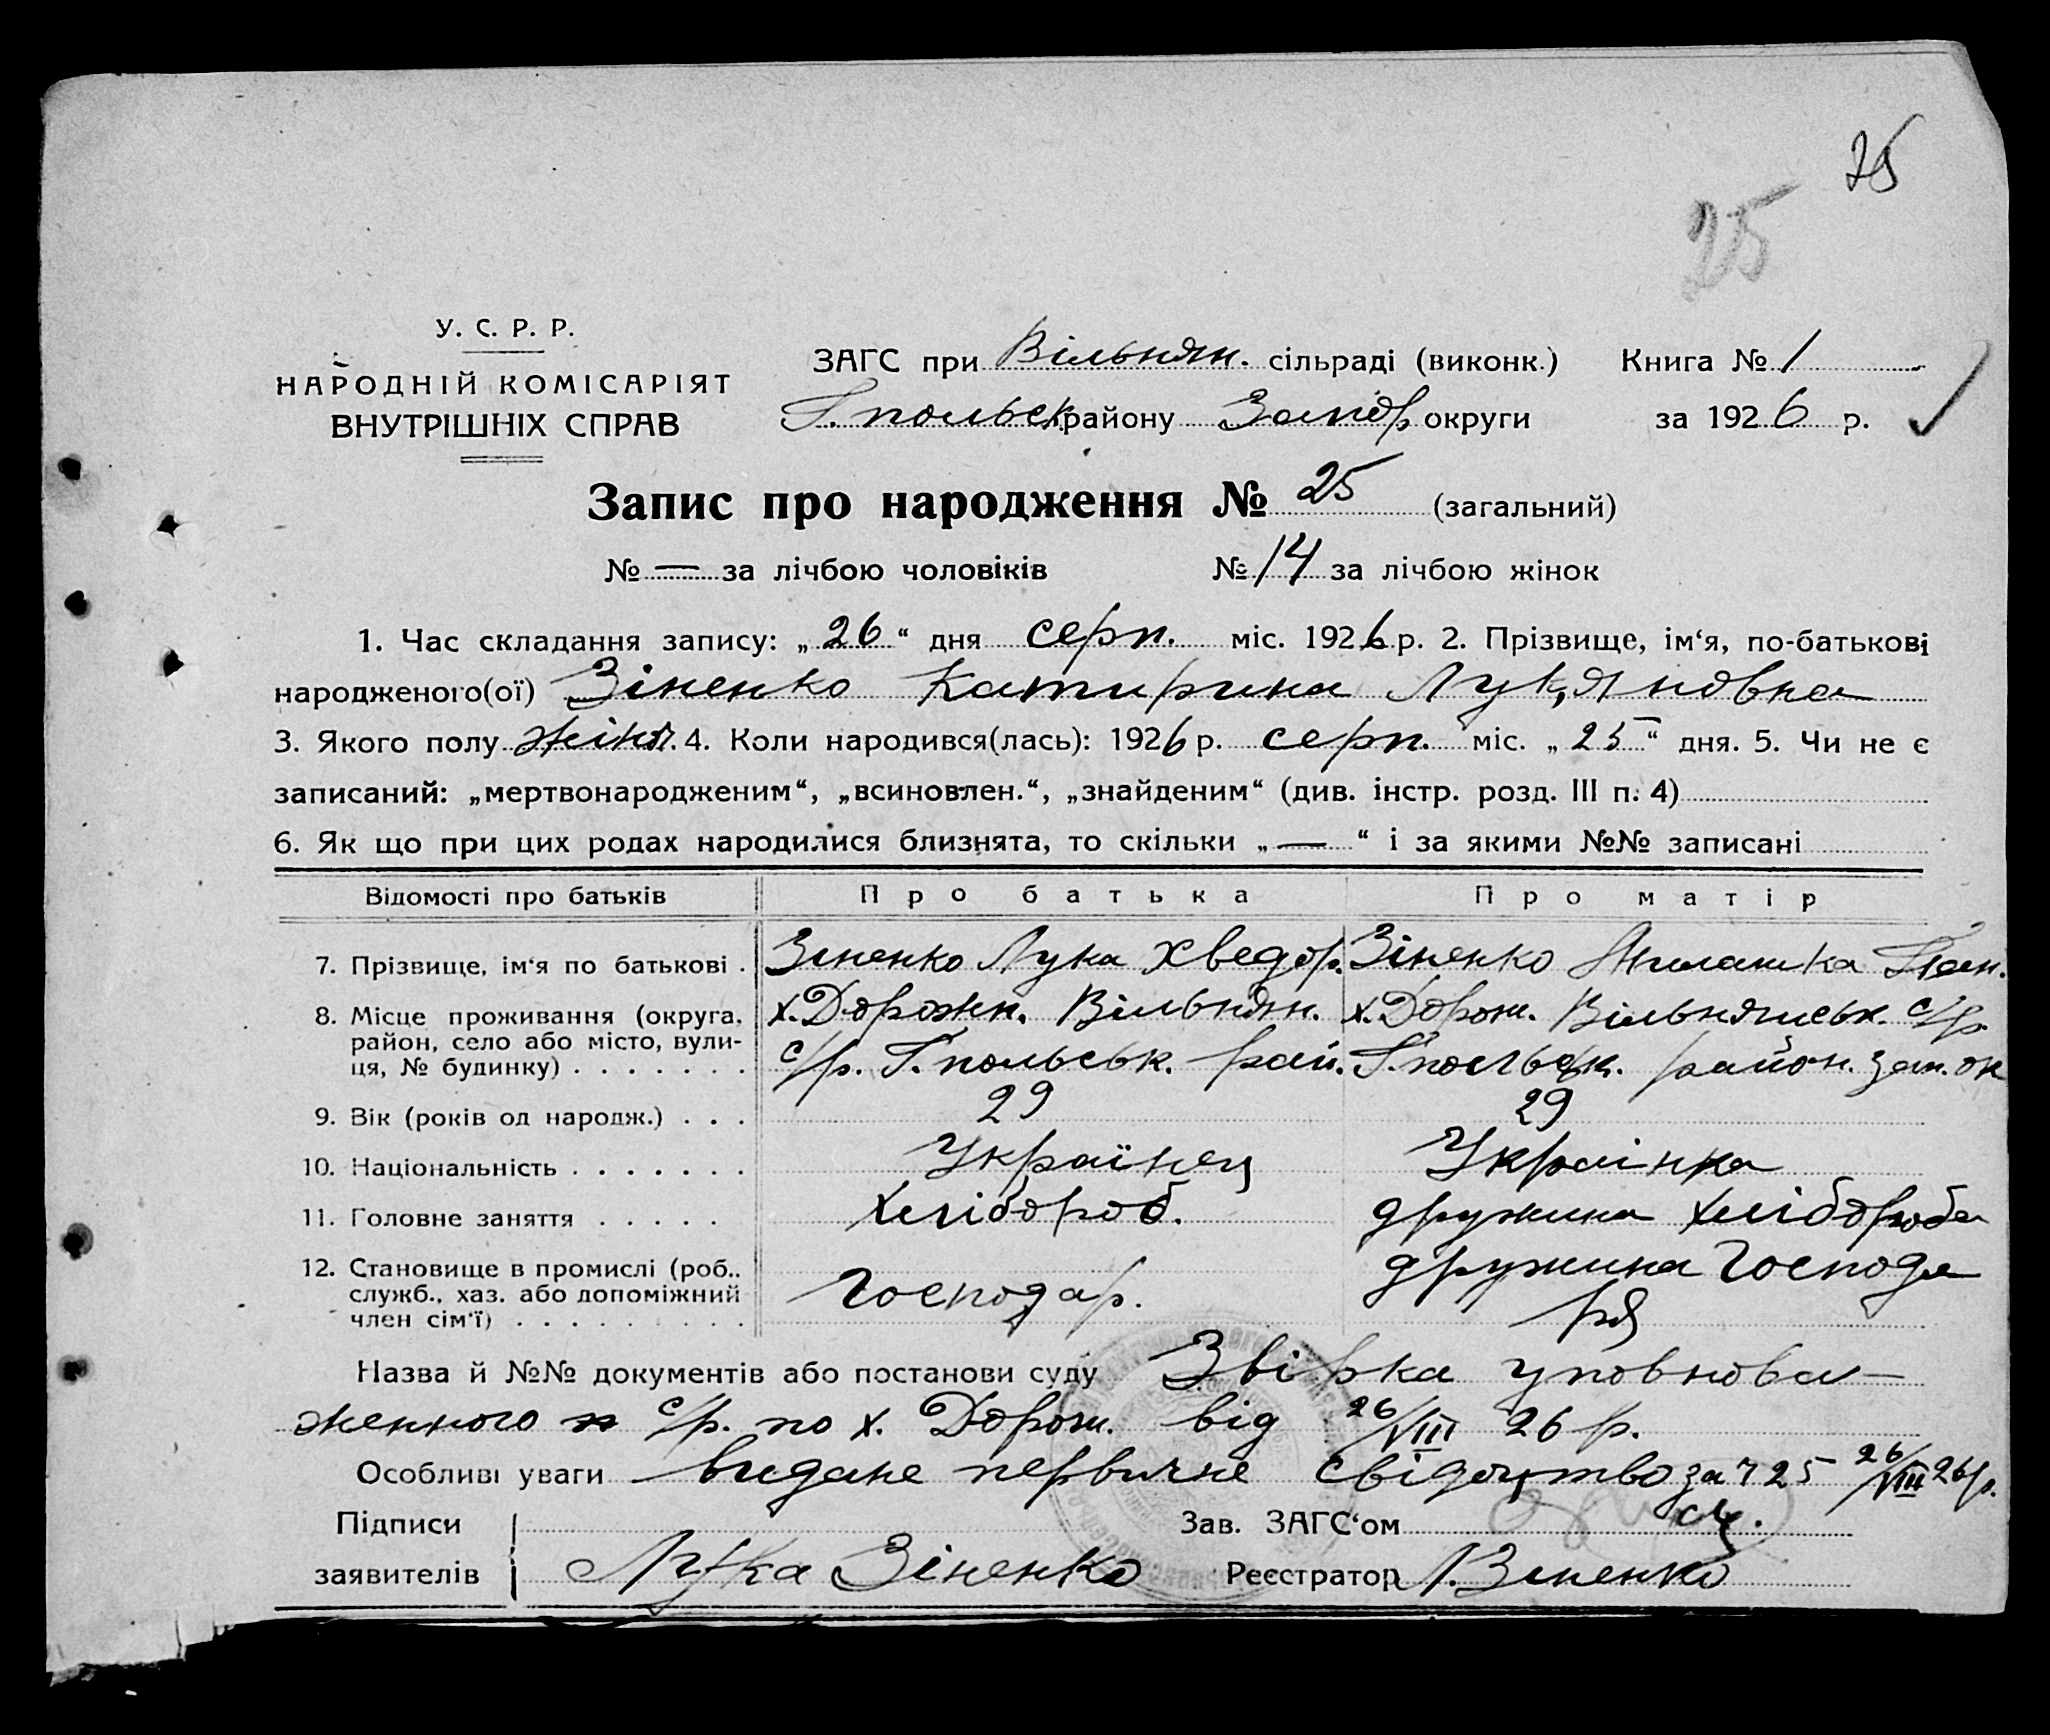 25
25
У. С. Р. Р.
НАРОДНІЙ КОМІСАРІЯТ
ВНУТРІШНІХ СПРАВ
ЗАГС при Вільнян. сільраді (виконк.) Книга № 1
Г.польськ району Запор округи за 1926 р.
Запис про народження № 25 (загальний)
№ — за лічбою чоловіків № 14 за лічбою жінок
1. Час складання запису: „26“ дня серп. міс. 1926 р. 2. Прізвище, ім‘я, по-батькові
народженого(ої) Зіненко Катирина Лук,яновна
3. Якого полу жіноч. 4. Коли народився(лась): 1926 р. серп. міс. „25“ дня. 5. Чи не є
записаний: „мертвонародженим“, „всиновлен.“, „знайденим“ (див. інстр. розд. III п. 4)
6. Як що при цих родах народилися близнята, то скільки „—“ і за якими №№ записані
Відомості про батьків Про батька Про матір
7. Прізвище, ім‘я по батькові . Зіненко Лука Хведор. Зіненко Пан.
8. Місце проживання (округа, х. Дорожн. Вільнян. х. Дорож. Вільнянськ. с/р.
район, село або місто, вули-
ця, № будинку) . . . . . . . с/р. Г.польськ. рай. Г.польськ. район. Зап. ок
9. Вік (років од народж.) . . . 29 29
10. Національність . . . . . . . Українец Украінка
11. Головне заняття . . . . . Хлібороб. дружина хлібороба
12. Становище в промислі (роб.. дружина господа
служб., хаз. або допоміжний господар.
член сім‘ї) . . . . . . . . . ря
Назва й №№ документів або постанови суду Звірка уповнова-
женного с/р. по х. Дорож. від 26/VIII 26 р.
Особливі уваги видане первичне свідоцтво за ч 25 26/VIII 26р.
Підписи Зав. ЗАГС‘ом
заявителів Лука Зіненко Реєстратор Л. Зіненко